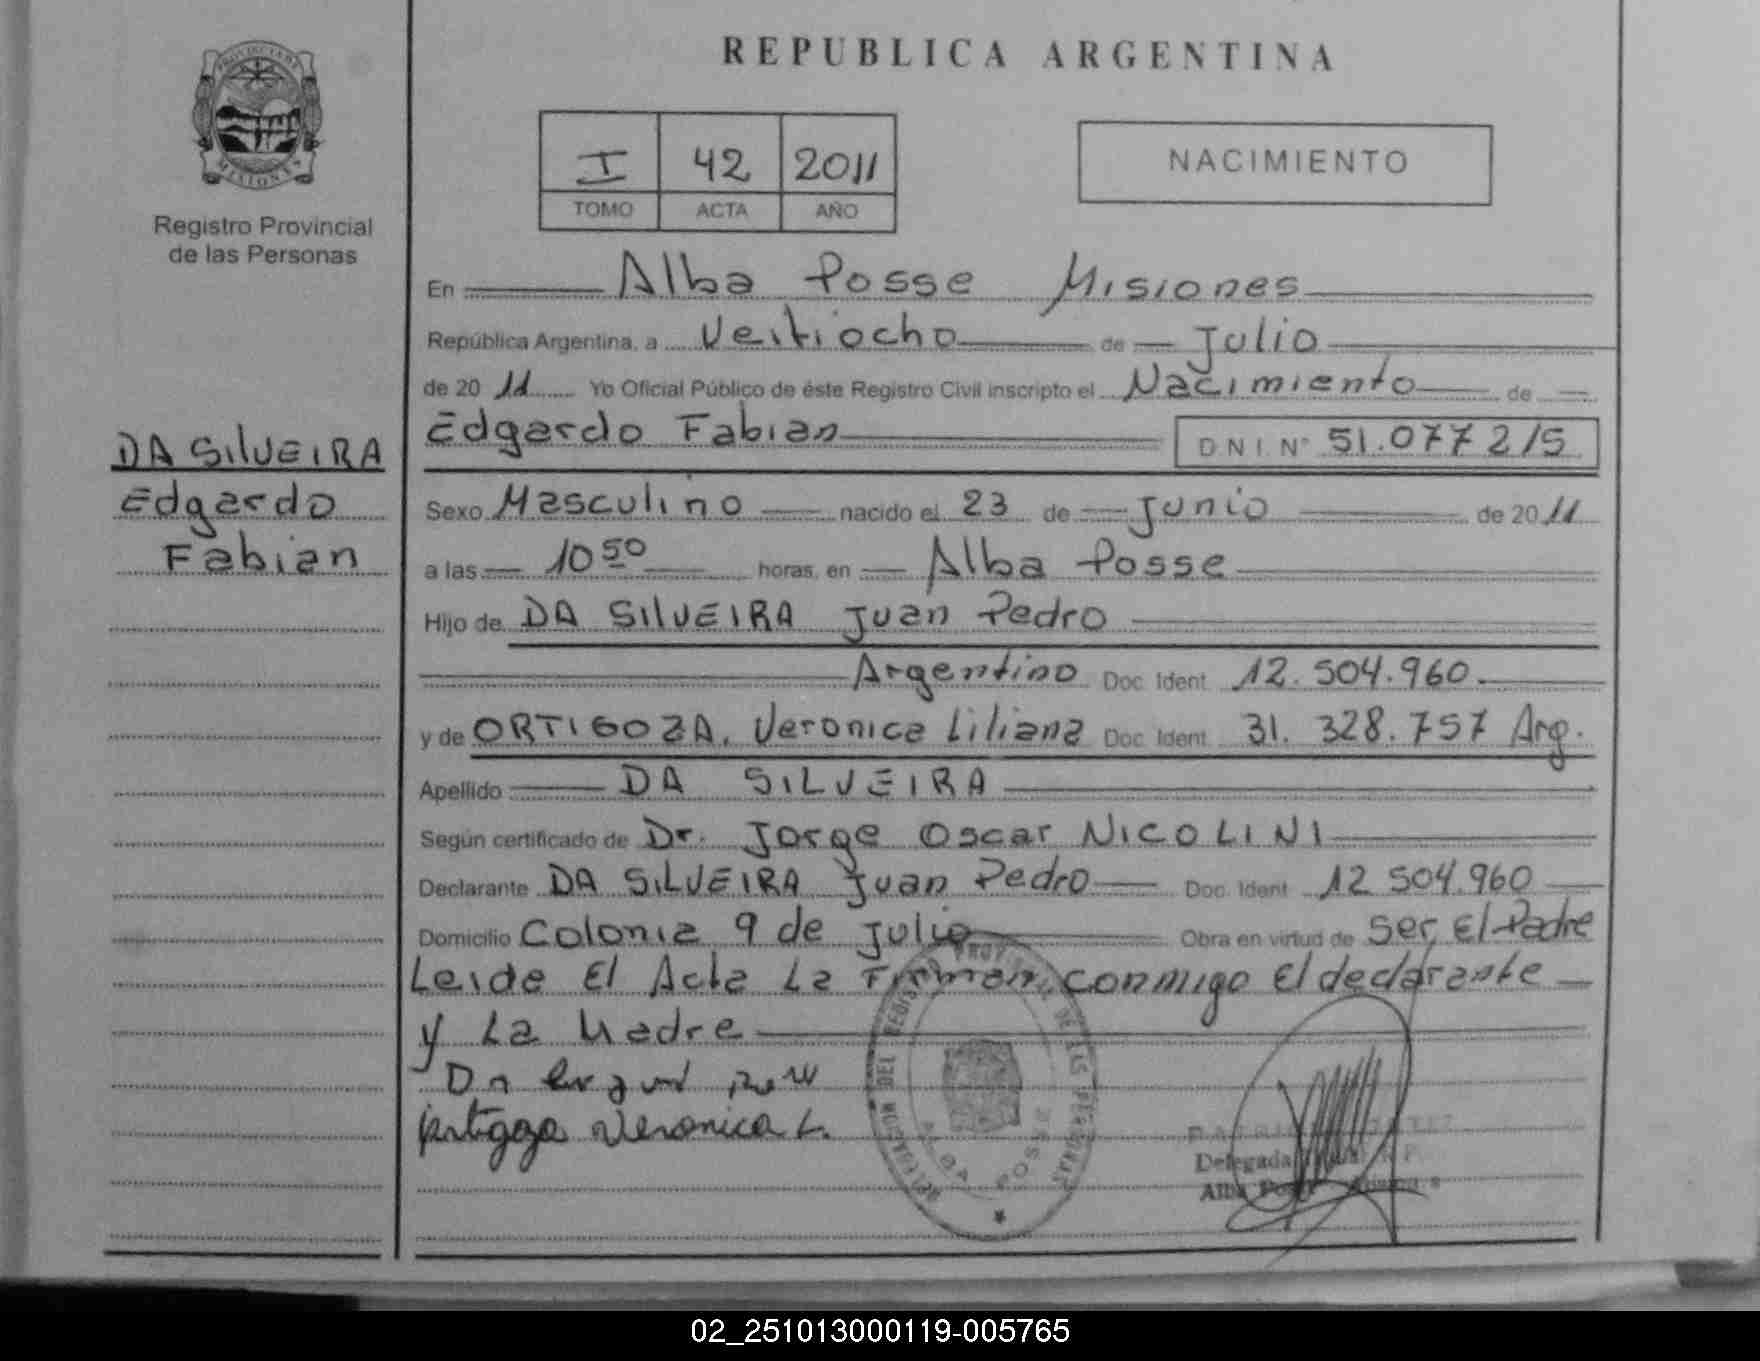 PROVINCIA DE
MISIONES
Registro Provincial
de las Personas
DA SILVEIRA
Edgardo
Fabian
REPUBLICA ARGENTINA
I 42 2011
TOMO ACTA AÑO
NACIMIENTO
En Alba Posse Misiones
República Argentina, a Veitiocho de Julio
de 20 11 Yo Oficial Público de éste Registro Civil inscripto el Nacimiento de
Edgardo Fabian D N I. Nº 51.077 215
Sexo Masculino nacido el 23 de Junio de 20 11
a las 10 50 horas, en Alba Posse
Hijo de DA SILVEIRA Juan Pedro
Argentino Doc. Ident. 12.504.960.
y de ORTIGOZA, Veronica Liliana Doc. Ident. 31. 328.757 Arg.
Apellido DA SILVEIRA
Según certificado de Dr. Jorge Oscar NICOLINI
Declarante DA SILVEIRA Juan Pedro Doc. Ident. 12 504.960
Domicilio Colonia 9 de Julio Obra en virtud de Ser El Padre
Leide El Acta La Firman conmigo El declarante
y La Madre
Veronica L.
DEL REGISTRO PROVINCIAL DE LAS PERSONAS
ALBA POSSE
Delegada
Alba Posse
02_251013000119-005765